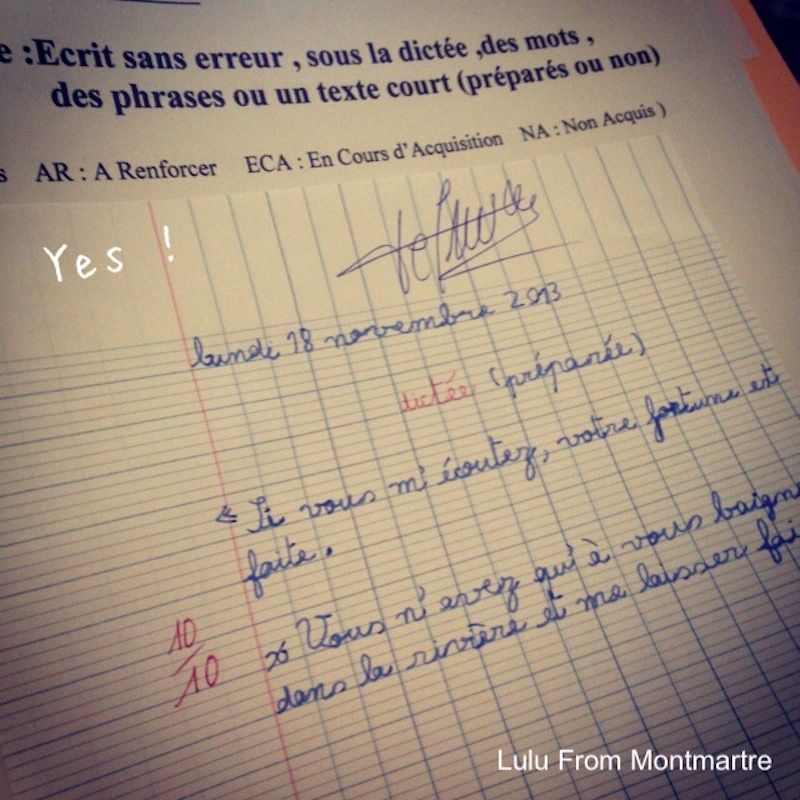 e :Ecrit sans erreur , sous la dictée ,des mots ,
des phrases ou un texte court (préparés ou non)
s AR : A Renforcer ECA : En Cours d'Acquisition NA : Non Acquis )
Yes !
lundi 18 novembre 2013
dictée (préparée)
« Si vous m'écoutez, votre fortune est
faite.
Vous n'avez qu'à vous baign
dans la rivière et me laisser fai
10
10
Lulu From Montmartre